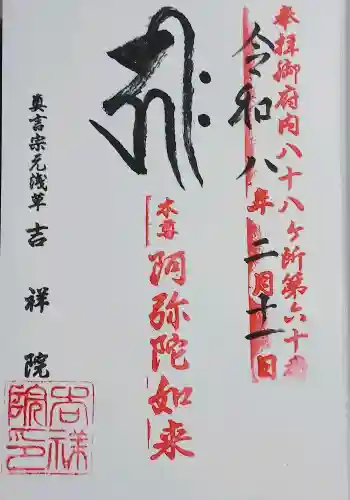 奉拝御府内八十八ヶ所第六十番
令和八年二月十一日
本尊
阿弥陀如来
真言宗元浅草吉祥院
吉祥院印